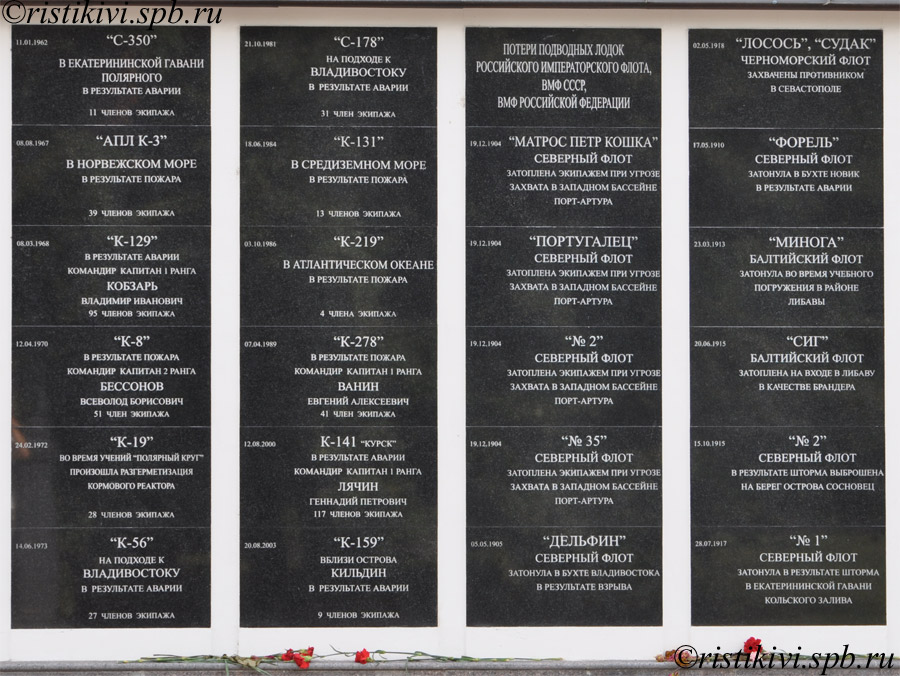 ©ristikivi.spb.ru
11.01.1962 “С-350”
В ЕКАТЕРИНИНСКОЙ ГАВАНИ
ПОЛЯРНОГО
В РЕЗУЛЬТАТЕ АВАРИИ
11 ЧЛЕНОВ ЭКИПАЖА
08.08.1967 “АПЛ К-3”
В НОРВЕЖСКОМ МОРЕ
В РЕЗУЛЬТАТЕ ПОЖАРА
39 ЧЛЕНОВ ЭКИПАЖА
08.03.1968 “К-129”
В РЕЗУЛЬТАТЕ АВАРИИ
КОМАНДИР КАПИТАН 1 РАНГА
КОБЗАРЬ
ВЛАДИМИР ИВАНОВИЧ
95 ЧЛЕНОВ ЭКИПАЖА
12.04.1970 “К-8”
В РЕЗУЛЬТАТЕ ПОЖАРА
КОМАНДИР КАПИТАН 2 РАНГА
БЕССОНОВ
ВСЕВОЛОД БОРИСОВИЧ
51 ЧЛЕН ЭКИПАЖА
24.02.1972 “К-19”
ВО ВРЕМЯ УЧЕНИЙ “ПОЛЯРНЫЙ КРУГ”
ПРОИЗОШЛА РАЗГЕРМЕТИЗАЦИЯ
КОРМОВОГО РЕАКТОРА
28 ЧЛЕНОВ ЭКИПАЖА
14.06.1973 “К-56”
НА ПОДХОДЕ К
ВЛАДИВОСТОКУ
В РЕЗУЛЬТАТЕ АВАРИИ
27 ЧЛЕНОВ ЭКИПАЖА
21.10.1981 “С-178”
НА ПОДХОДЕ К
ВЛАДИВОСТОКУ
В РЕЗУЛЬТАТЕ АВАРИИ
31 ЧЛЕН ЭКИПАЖА
18.06.1984 “К-131”
В СРЕДИЗЕМНОМ МОРЕ
В РЕЗУЛЬТАТЕ ПОЖАРА
13 ЧЛЕНОВ ЭКИПАЖА
03.10.1986 “К-219”
В АТЛАНТИЧЕСКОМ ОКЕАНЕ
В РЕЗУЛЬТАТЕ ПОЖАРА
4 ЧЛЕНА ЭКИПАЖА
07.04.1989 “К-278”
В РЕЗУЛЬТАТЕ ПОЖАРА
КОМАНДИР КАПИТАН 1 РАНГА
ВАНИН
ЕВГЕНИЙ АЛЕКСЕЕВИЧ
41 ЧЛЕН ЭКИПАЖА
12.08.2000 К-141 “КУРСК”
В РЕЗУЛЬТАТЕ АВАРИИ
КОМАНДИР КАПИТАН 1 РАНГА
ЛЯЧИН
ГЕННАДИЙ ПЕТРОВИЧ
117 ЧЛЕНОВ ЭКИПАЖА
20.08.2003 “К-159”
ВБЛИЗИ ОСТРОВА
КИЛЬДИН
В РЕЗУЛЬТАТЕ АВАРИИ
9 ЧЛЕНОВ ЭКИПАЖА
ПОТЕРИ ПОДВОДНЫХ ЛОДОК
РОССИЙСКОГО ИМПЕРАТОРСКОГО ФЛОТА,
ВМФ СССР,
ВМФ РОССИЙСКОЙ ФЕДЕРАЦИИ
19.12.1904 “МАТРОС ПЕТР КОШКА”
СЕВЕРНЫЙ ФЛОТ
ЗАТОПЛЕНА ЭКИПАЖЕМ ПРИ УГРОЗЕ
ЗАХВАТА В ЗАПАДНОМ БАССЕЙНЕ
ПОРТ-АРТУРА
19.12.1904 “ПОРТУГАЛЕЦ”
СЕВЕРНЫЙ ФЛОТ
ЗАТОПЛЕНА ЭКИПАЖЕМ ПРИ УГРОЗЕ
ЗАХВАТА В ЗАПАДНОМ БАССЕЙНЕ
ПОРТ-АРТУРА
19.12.1904 “№ 2”
СЕВЕРНЫЙ ФЛОТ
ЗАТОПЛЕНА ЭКИПАЖЕМ ПРИ УГРОЗЕ
ЗАХВАТА В ЗАПАДНОМ БАССЕЙНЕ
ПОРТ-АРТУРА
19.12.1904 “№ 35”
СЕВЕРНЫЙ ФЛОТ
ЗАТОПЛЕНА ЭКИПАЖЕМ ПРИ УГРОЗЕ
ЗАХВАТА В ЗАПАДНОМ БАССЕЙНЕ
ПОРТ-АРТУРА
05.05.1905 “ДЕЛЬФИН”
СЕВЕРНЫЙ ФЛОТ
ЗАТОНУЛА В БУХТЕ ВЛАДИВОСТОКА
В РЕЗУЛЬТАТЕ ВЗРЫВА
02.05.1918 “ЛОСОСЬ”, “СУДАК”
ЧЕРНОМОРСКИЙ ФЛОТ
ЗАХВАЧЕНЫ ПРОТИВНИКОМ
В СЕВАСТОПОЛЕ
17.05.1910 “ФОРЕЛЬ”
СЕВЕРНЫЙ ФЛОТ
ЗАТОНУЛА В БУХТЕ НОВИК
В РЕЗУЛЬТАТЕ АВАРИИ
23.03.1913 “МИНОГА”
БАЛТИЙСКИЙ ФЛОТ
ЗАТОНУЛА ВО ВРЕМЯ УЧЕБНОГО
ПОГРУЖЕНИЯ В РАЙОНЕ
ЛИБАВЫ
20.06.1915 “СИГ”
БАЛТИЙСКИЙ ФЛОТ
ЗАТОПЛЕНА НА ВХОДЕ В ЛИБАВУ
В КАЧЕСТВЕ БРАНДЕРА
15.10.1915 “№ 2”
СЕВЕРНЫЙ ФЛОТ
В РЕЗУЛЬТАТЕ ШТОРМА ВЫБРОШЕНА
НА БЕРЕГ ОСТРОВА СОСНОВЕЦ
28.07.1917 “№ 1”
СЕВЕРНЫЙ ФЛОТ
ЗАТОНУЛА В РЕЗУЛЬТАТЕ ШТОРМА
В ЕКАТЕРИНИНСКОЙ ГАВАНИ
КОЛЬСКОГО ЗАЛИВА
©ristikivi.spb.ru